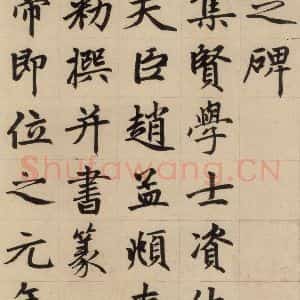 之碑
集賢學士資
夫臣趙孟頫奉
勑撰并書篆
帝即位之元年
Shufawang.CN